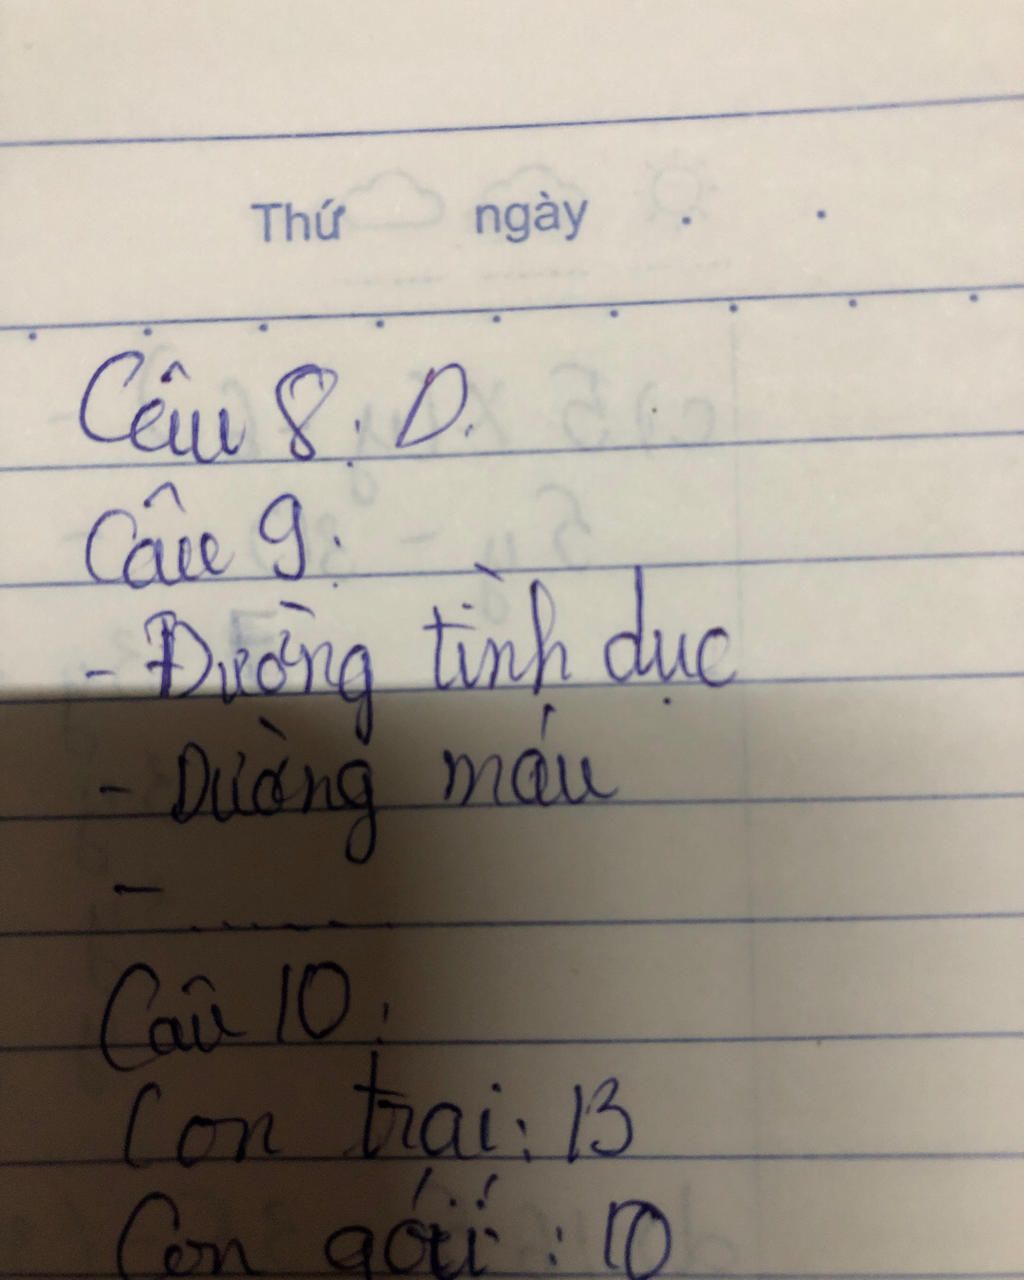 Thứ ngày
Câu 8: D.
Câu 9:
- Đường tình dục
- Đường máu
- ......
Câu 10:
Con trai: 13
Con gái: 10